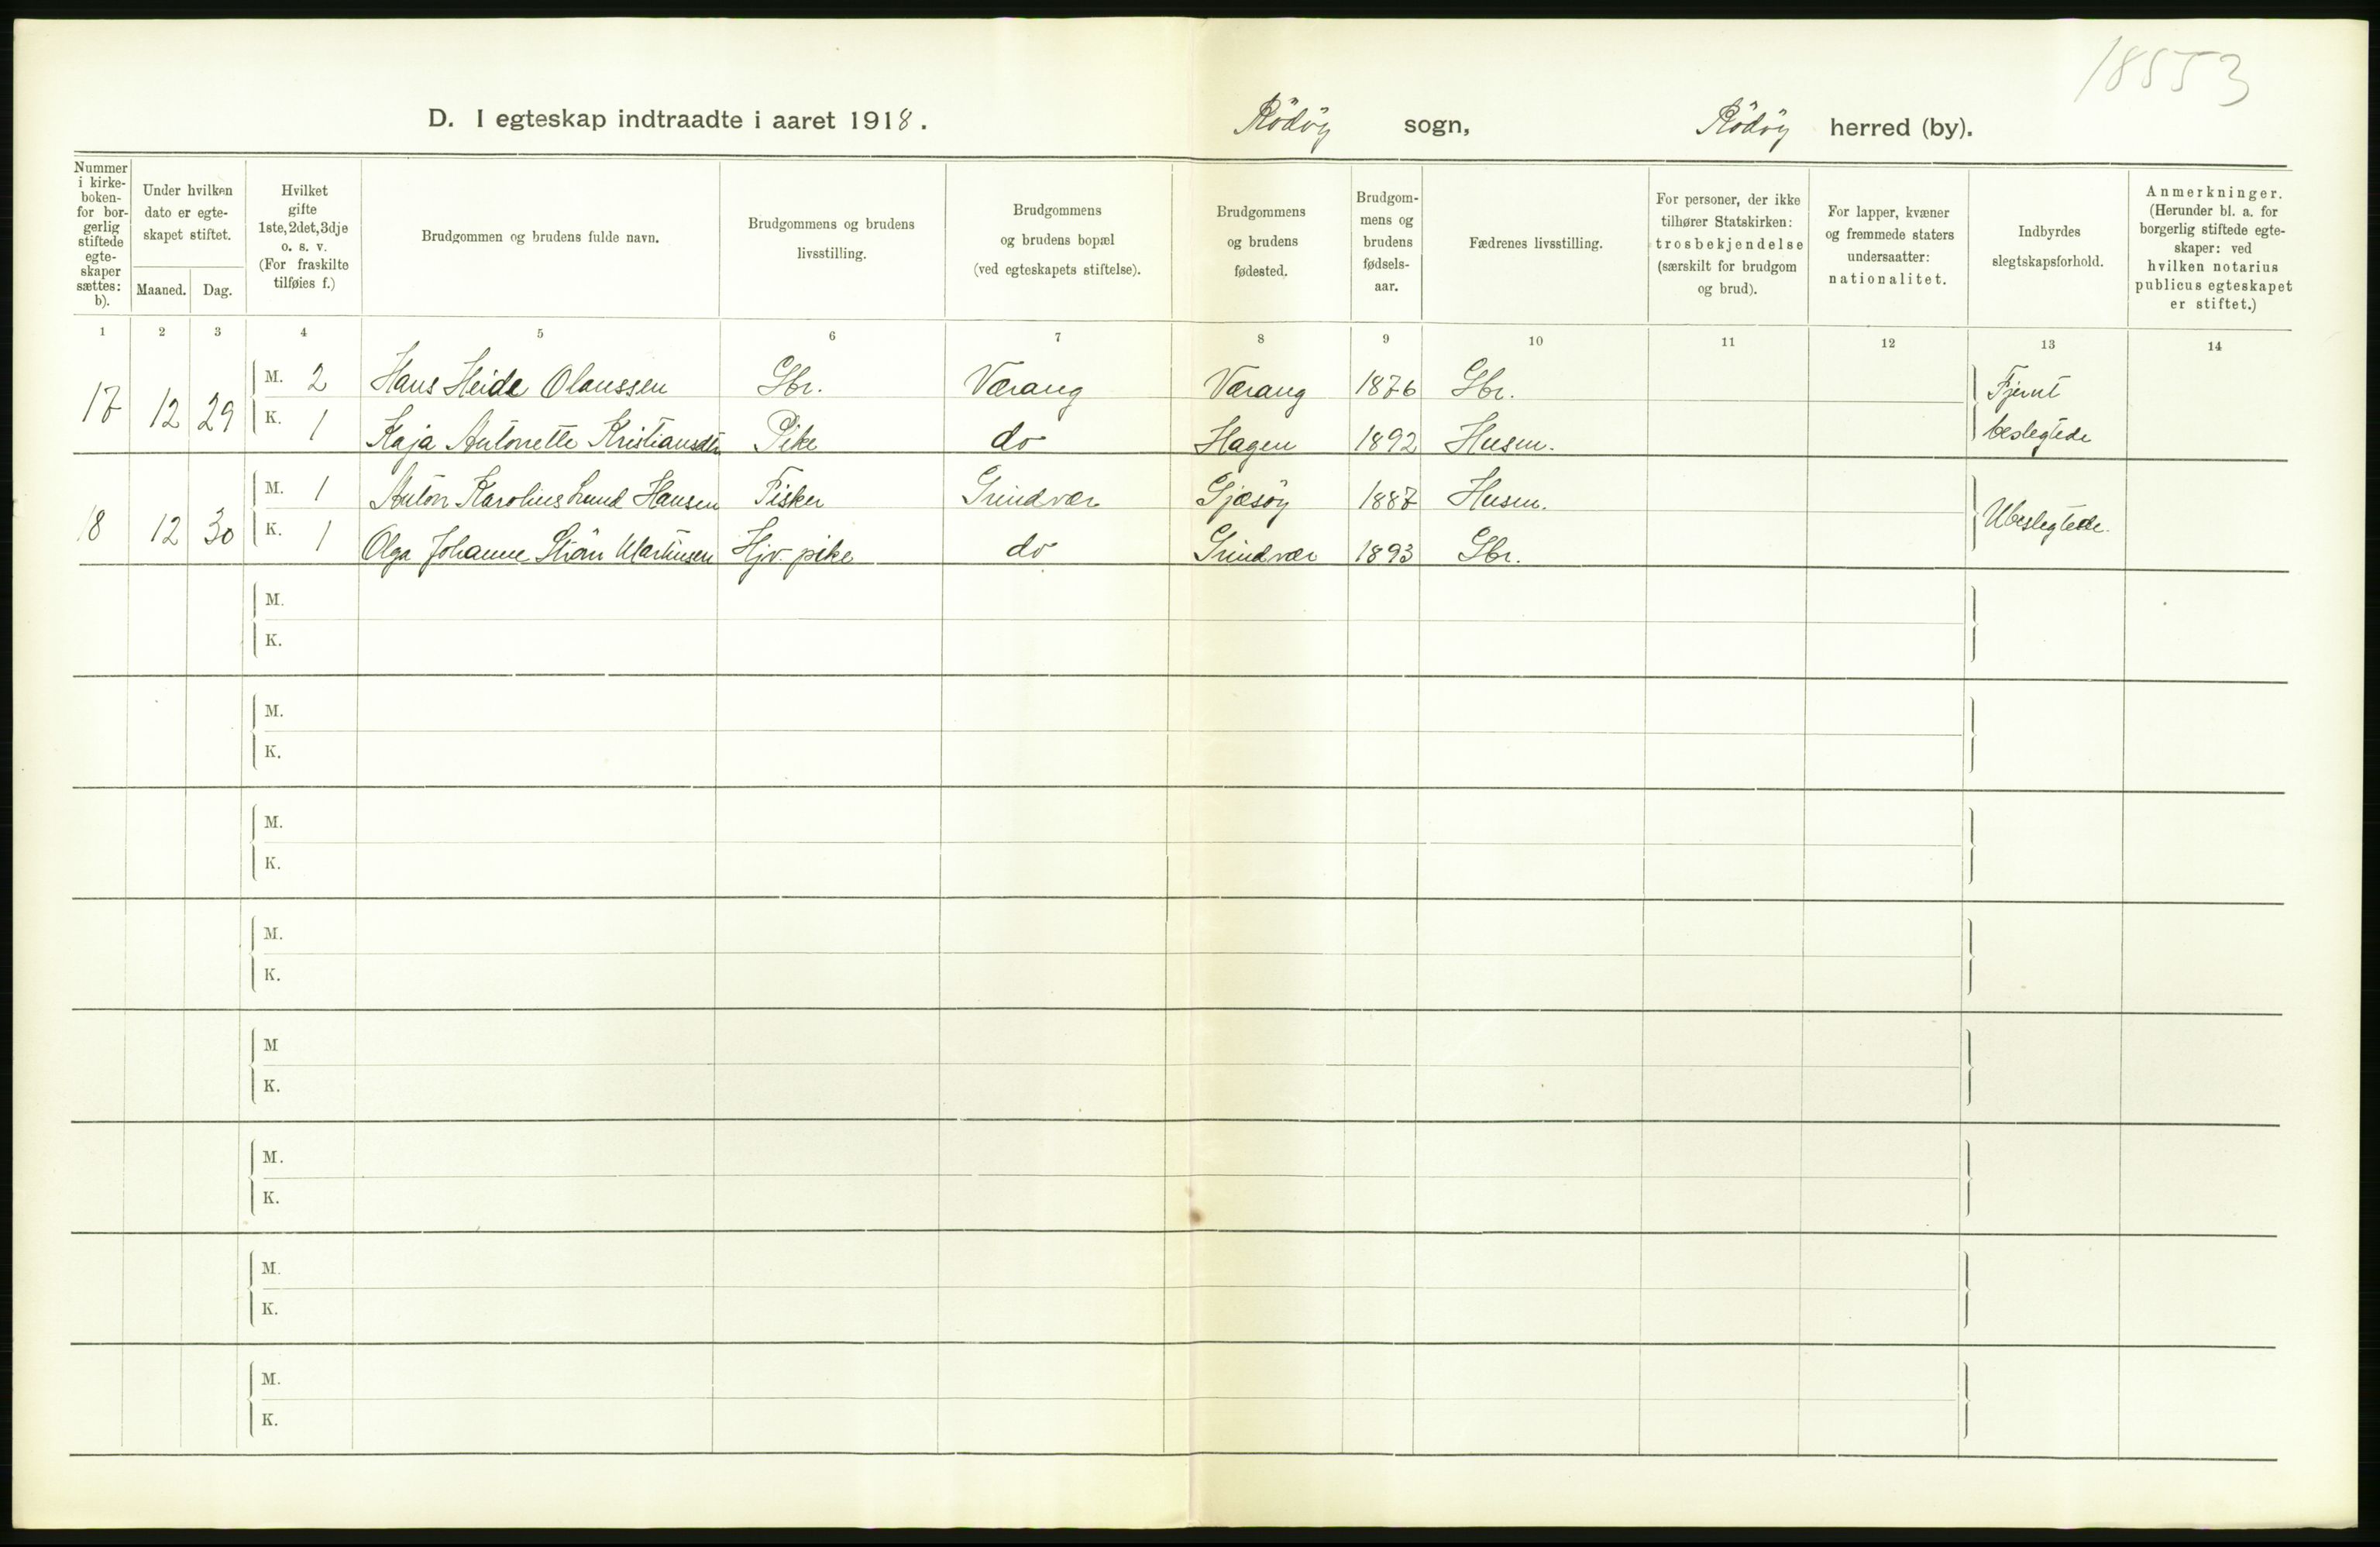 18553
D. I egteskap indtraadte i aaret 1918. Rödöy sogn, Rödöy herred (by).
Nummer i kirke-boken- for bor-gerlig stiftede egte-skaper sættes: b).
Under hvilken dato er egte-skapet stiftet.
Maaned. Dag.
Hvilket gifte 1ste, 2det, 3dje o. s. v. (For fraskilte tilføies f.)
Brudgommen og brudens fulde navn.
Brudgommens og brudens livsstilling.
Brudgommens og brudens bopæl (ved egteskapets stiftelse).
Brudgommens og brudens fødested.
Brudgom-mens og brudens fødsels-aar.
Fædrenes livsstilling.
For personer, der ikke tilhører Statskirken: trosbekjendelse (særskilt for brudgom og brud).
For lapper, kvæner og fremmede staters undersaatter: nationalitet.
Indbyrdes slegtskapsforhold.
Anmerkninger. (Herunder bl. a. for borgerlig stiftede egte-skaper: ved hvilken notarius publicus egteskapet er stiftet.)
1 2 3 4 5 6 7 8 9 10 11 12 13 14
17 12 29 M. 2 Hans Heide Olaussen Gbr. Værang Værang 1876 Gbr. Fjernt
K. 1 Kaja Antonette Kristiansdtr Pike do Hagen 1892 Husm. beslegtede
18 12 30 M. 1 Anton Karolius Lund Hansen Fisker Grindvær Gjæsöy 1887 Husm. Ubeslegtede.
K. 1 Olga Johanne Ström Martinsen Hjv. pike do Grindvær 1893 Gbr.
M.
K.
M.
K.
M.
K.
M.
K.
M
K.
M.
K.
M.
K.
M.
K.